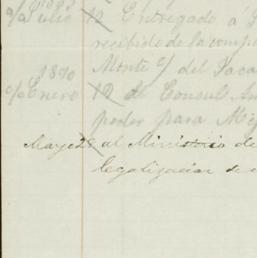 Julio 12 Entregado á
recibido de la comp
Monte c/ del Jaca
1870
c/ Enero 12 de Consul An
poder para Mi
Mayo 28 al Ministerio de
legalizacion de